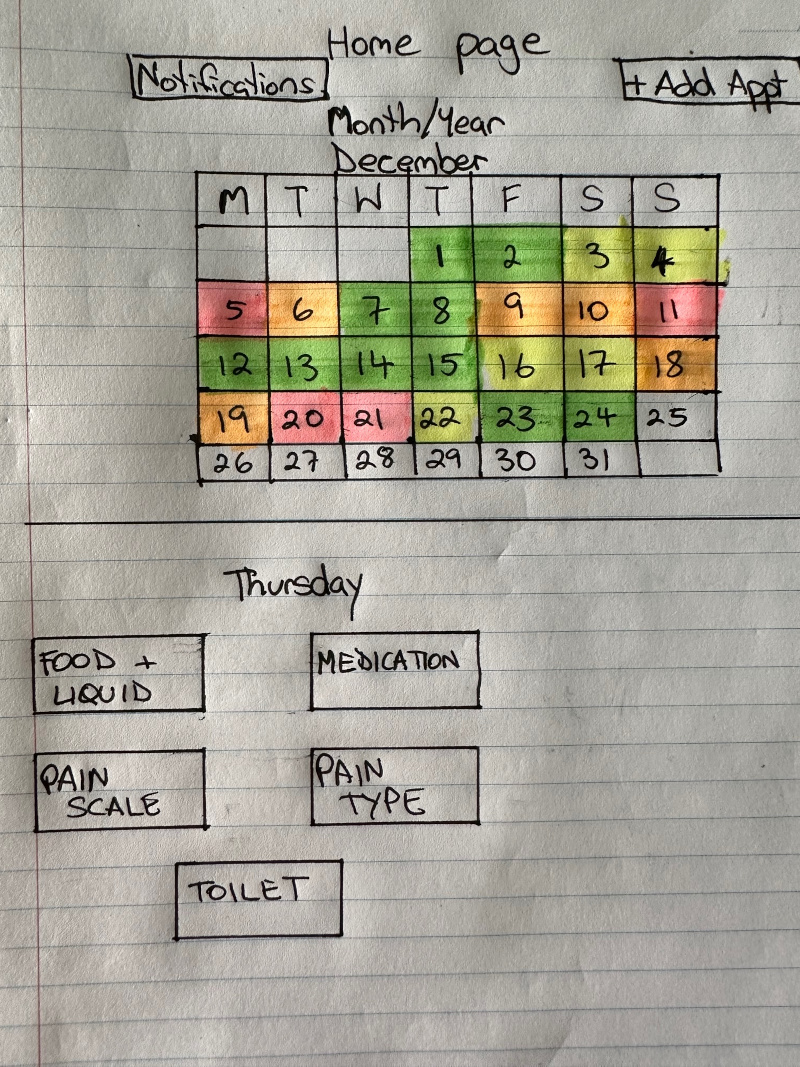 Home page
Notifications + Add Appt
Month/Year
December
M T W T F S S
1 2 3 4
5 6 7 8 9 10 11
12 13 14 15 16 17 18
19 20 21 22 23 24 25
26 27 28 29 30 31
Thursday
FOOD + MEDICATION
LIQUID
PAIN PAIN
SCALE TYPE
TOILET